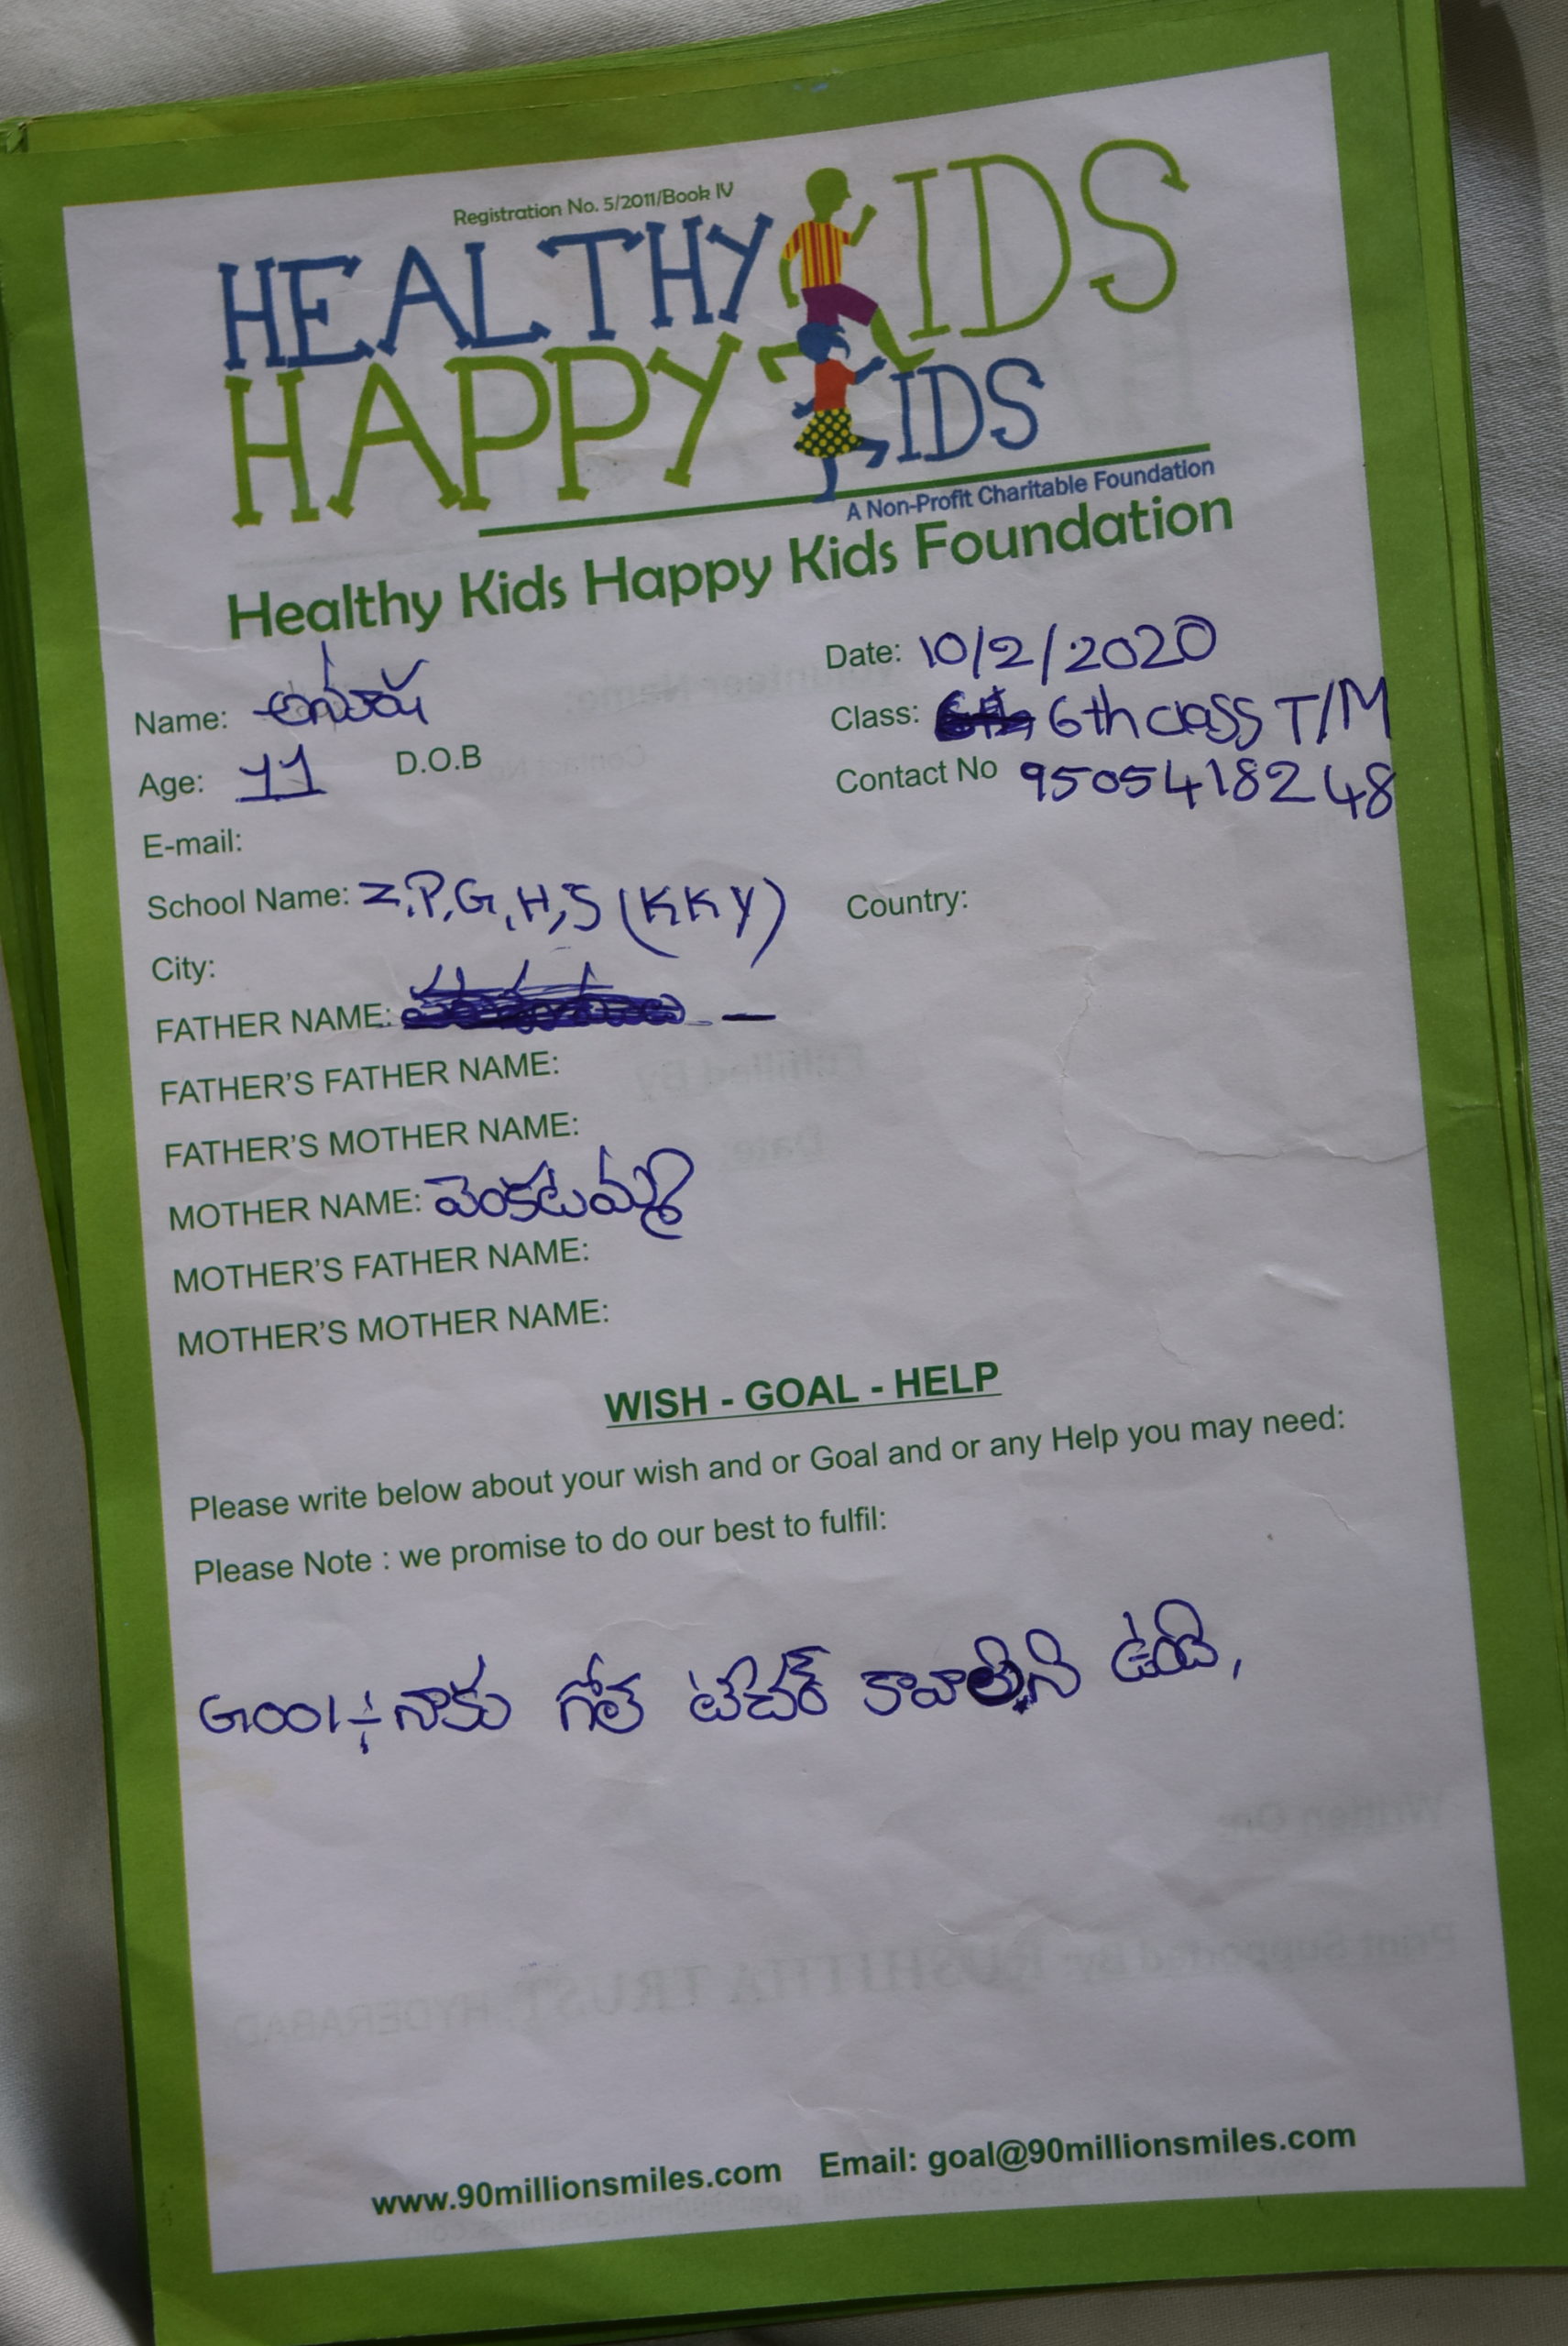 Registration No. 5/2011/Book IV
HEALTHY KIDS
HAPPY KIDS
A Non-Profit Charitable Foundation
Healthy Kids Happy Kids Foundation
Date: 10/2/2020
Name:
Class: 6th class T/M
Age: 11 D.O.B
Contact No 9505418248
E-mail:
School Name: Z.P.G.H.S (KKY) Country:
City:
FATHER NAME: —
FATHER'S FATHER NAME:
FATHER'S MOTHER NAME:
MOTHER NAME: వెంకటమ్మ
MOTHER'S FATHER NAME:
MOTHER'S MOTHER NAME:
WISH - GOAL - HELP
Please write below about your wish and or Goal and or any Help you may need:
Please Note : we promise to do our best to fulfil:
Gool :- నాకు గోల టీచర్ కావాలని ఉంది,
www.90millionsmiles.com Email: goal@90millionsmiles.com